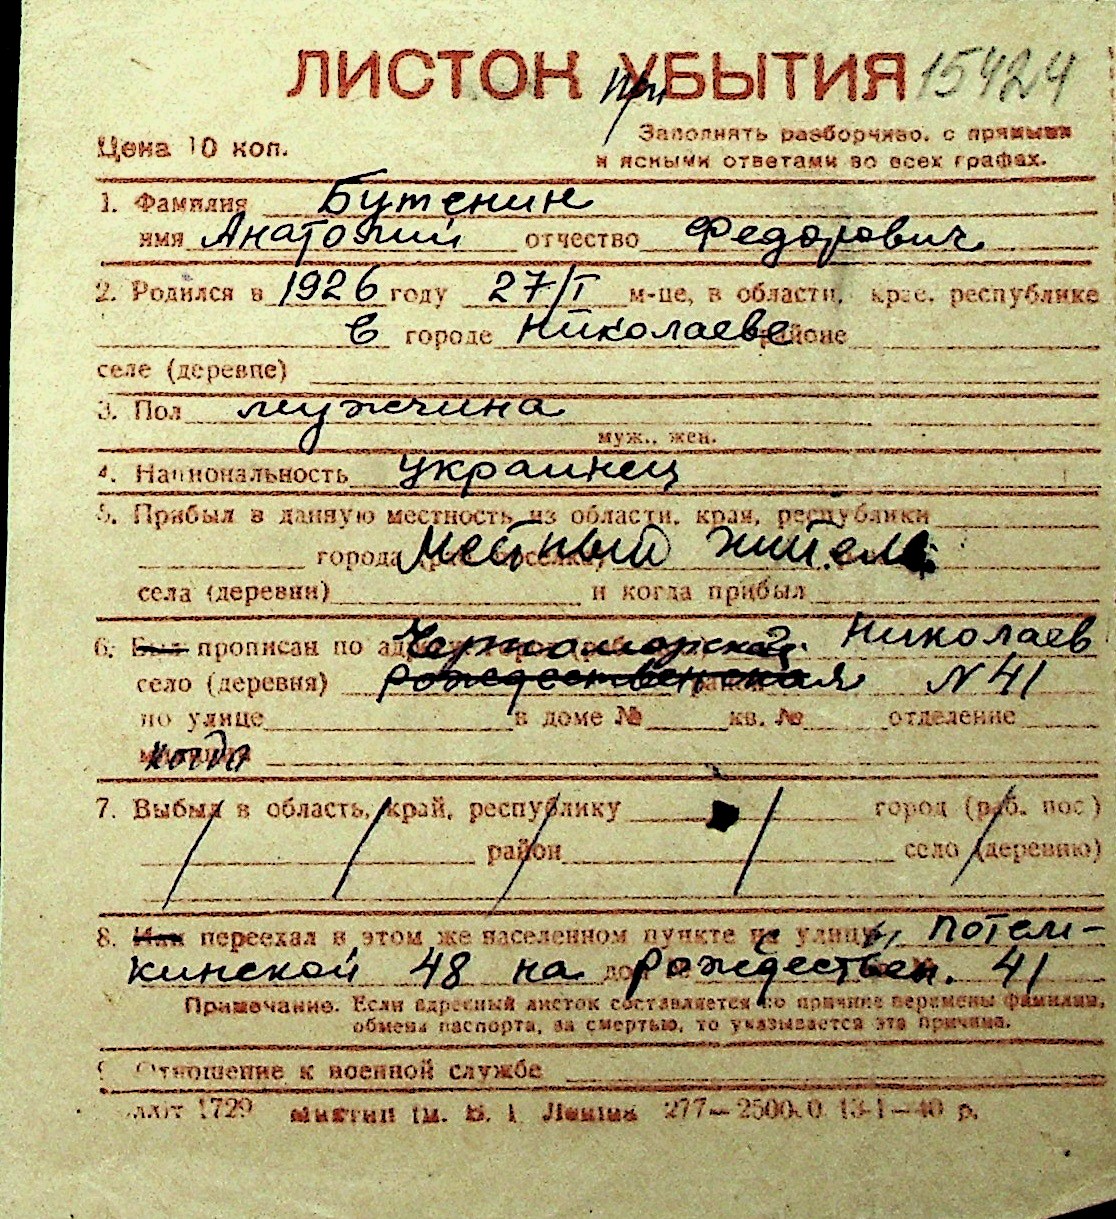 ЛИСТОК УБЫТИЯ 15424
При
Цена 10 коп.
Заполнять разборчиво, с прямыми
и ясными ответами во всех графах.
1. Фамилия Бутенин
имя Анатолий отчество Федорович
2. Родился в 1926 году 27/I м-це, в области, крае, республике
в городе Николаеве районе
селе (деревне)
3. Пол мужчина
муж., жен.
4. Национальность украинец
5. Прибыл в данную местность из области, края, республики
города Местный житель
села (деревни) и когда прибыл
6. Был прописан по Черноморской Николаев
село (деревня) рождественская N 41
по улице в доме № кв. № отделение
когда
7. Выбыл в область, край, республику город (раб. пос)
район село (деревню)
8. Или переехал в этом же населенном пункте на улицу с Потем-
кинской 48 на рождествен. 41
Примечание. Если адресный листок составляется по причине перемены фамилии,
обмена паспорта, за смертью, то указывается эта причина.
9 Отношение к военной службе
1729 ім. В. І. Леніна 277—2500.0 13-1—40 р.